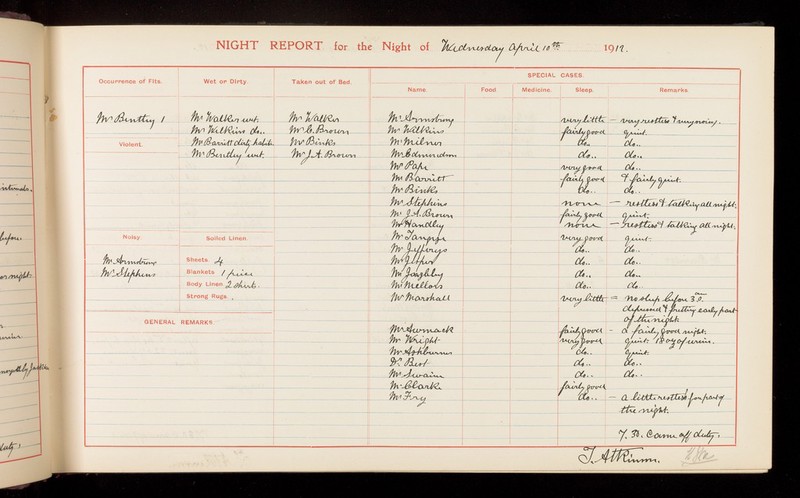 NIGHT REPORT for the Night of Wednesday April 10th 1912.
SPECIAL CASES.
Occurrence of Fits. Wet or Dirty. Taken out of Bed. Name. Food Medicine. Sleep. Remarks.
Mr Bentley 1 Mr Walker wet. Mr Walker Mr Armstrong very little — very restless & very noisy.
Mr Wilkins do.. Mr C. Brown Mr Wilkins fairly good quiet.
Violent. Mr Barritt dirty habits Mr Binks Mr Milner do.. do..
Mr Bentley wet. Mr J.A. Brown Mr Edmundson do.. do..
Mr Pape very good do..
Mr Barritt fairly good & fairly quiet.
Mr Binks do.. do..
Mr Stephens none — restless & talking all night.
Mr J.A. Brown fairly good quiet.
Mr Handley none — restless & talking all night.
Noisy. Soiled Linen. Mr very good quiet.
Mr Jefferys do.. do..
Mr Armstrong Sheets 4 Mr do.. do..
Mr Stephens Blankets 1 Mr do.. do..
Body Linen 2 shirts. Mr Mellors do.. do..
Strong Rugs. Mr Marshall very little = no sleep before 3
depressed & early part
of the night.
GENERAL REMARKS.
Mr fairly good - a fairly good night.
Mr Wright very good quiet. of urine.
Mr Ashburner do.. quiet.
Dr Best do.. do..
Mr Swaine do.. do..
Mr Clarke fairly good
Mr Fry do.. — a little restless for part of
the night.
7. 30. Came off duty.
T. Atkinson.